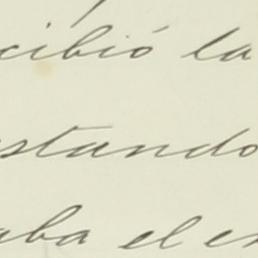 cibió la
stando
aba el en